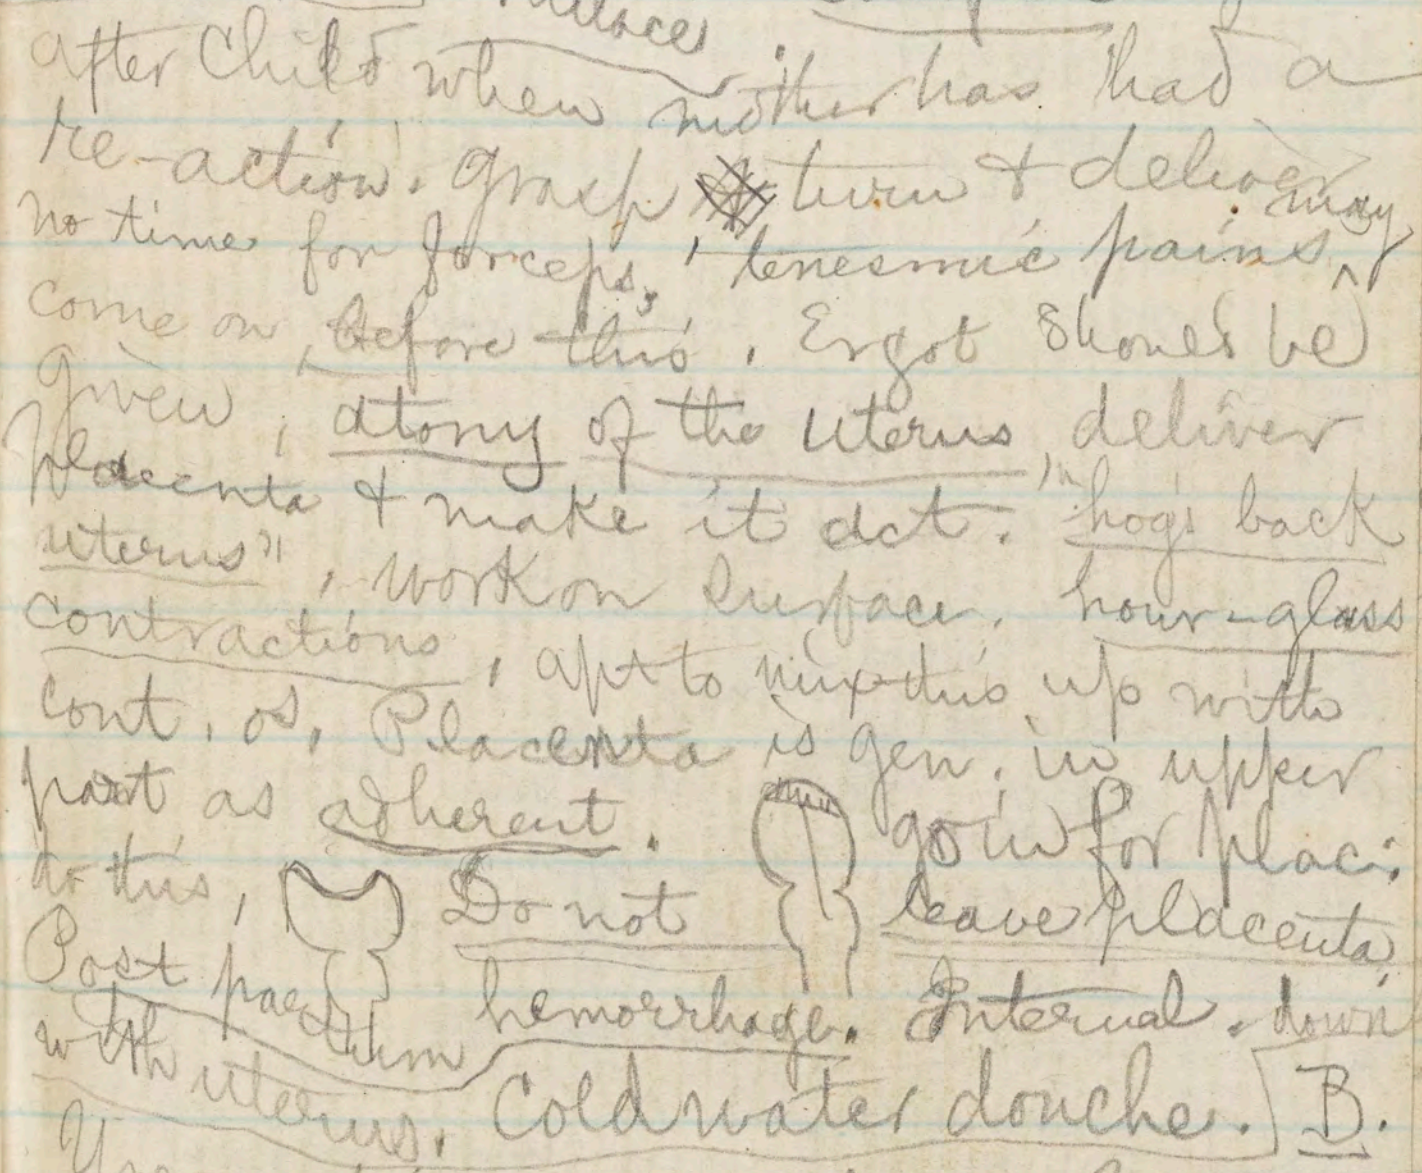 after Child when mother has had a
re-action. Grasp turn & deliver
no time for forceps, tenesmic pains may
come on, before this. Ergot should be
given, atony of the uterus, deliver
placenta & make it act. "hogs back
uterus", work on surface. hour-glass
contractions, apt to mix this up with
cont. os. Placenta is gen. in upper
part as adherent. go in for plac.
do this, Do not leave placenta,
Post partum hemorrhage. Internal. down
with uterus. Cold water douche. B.